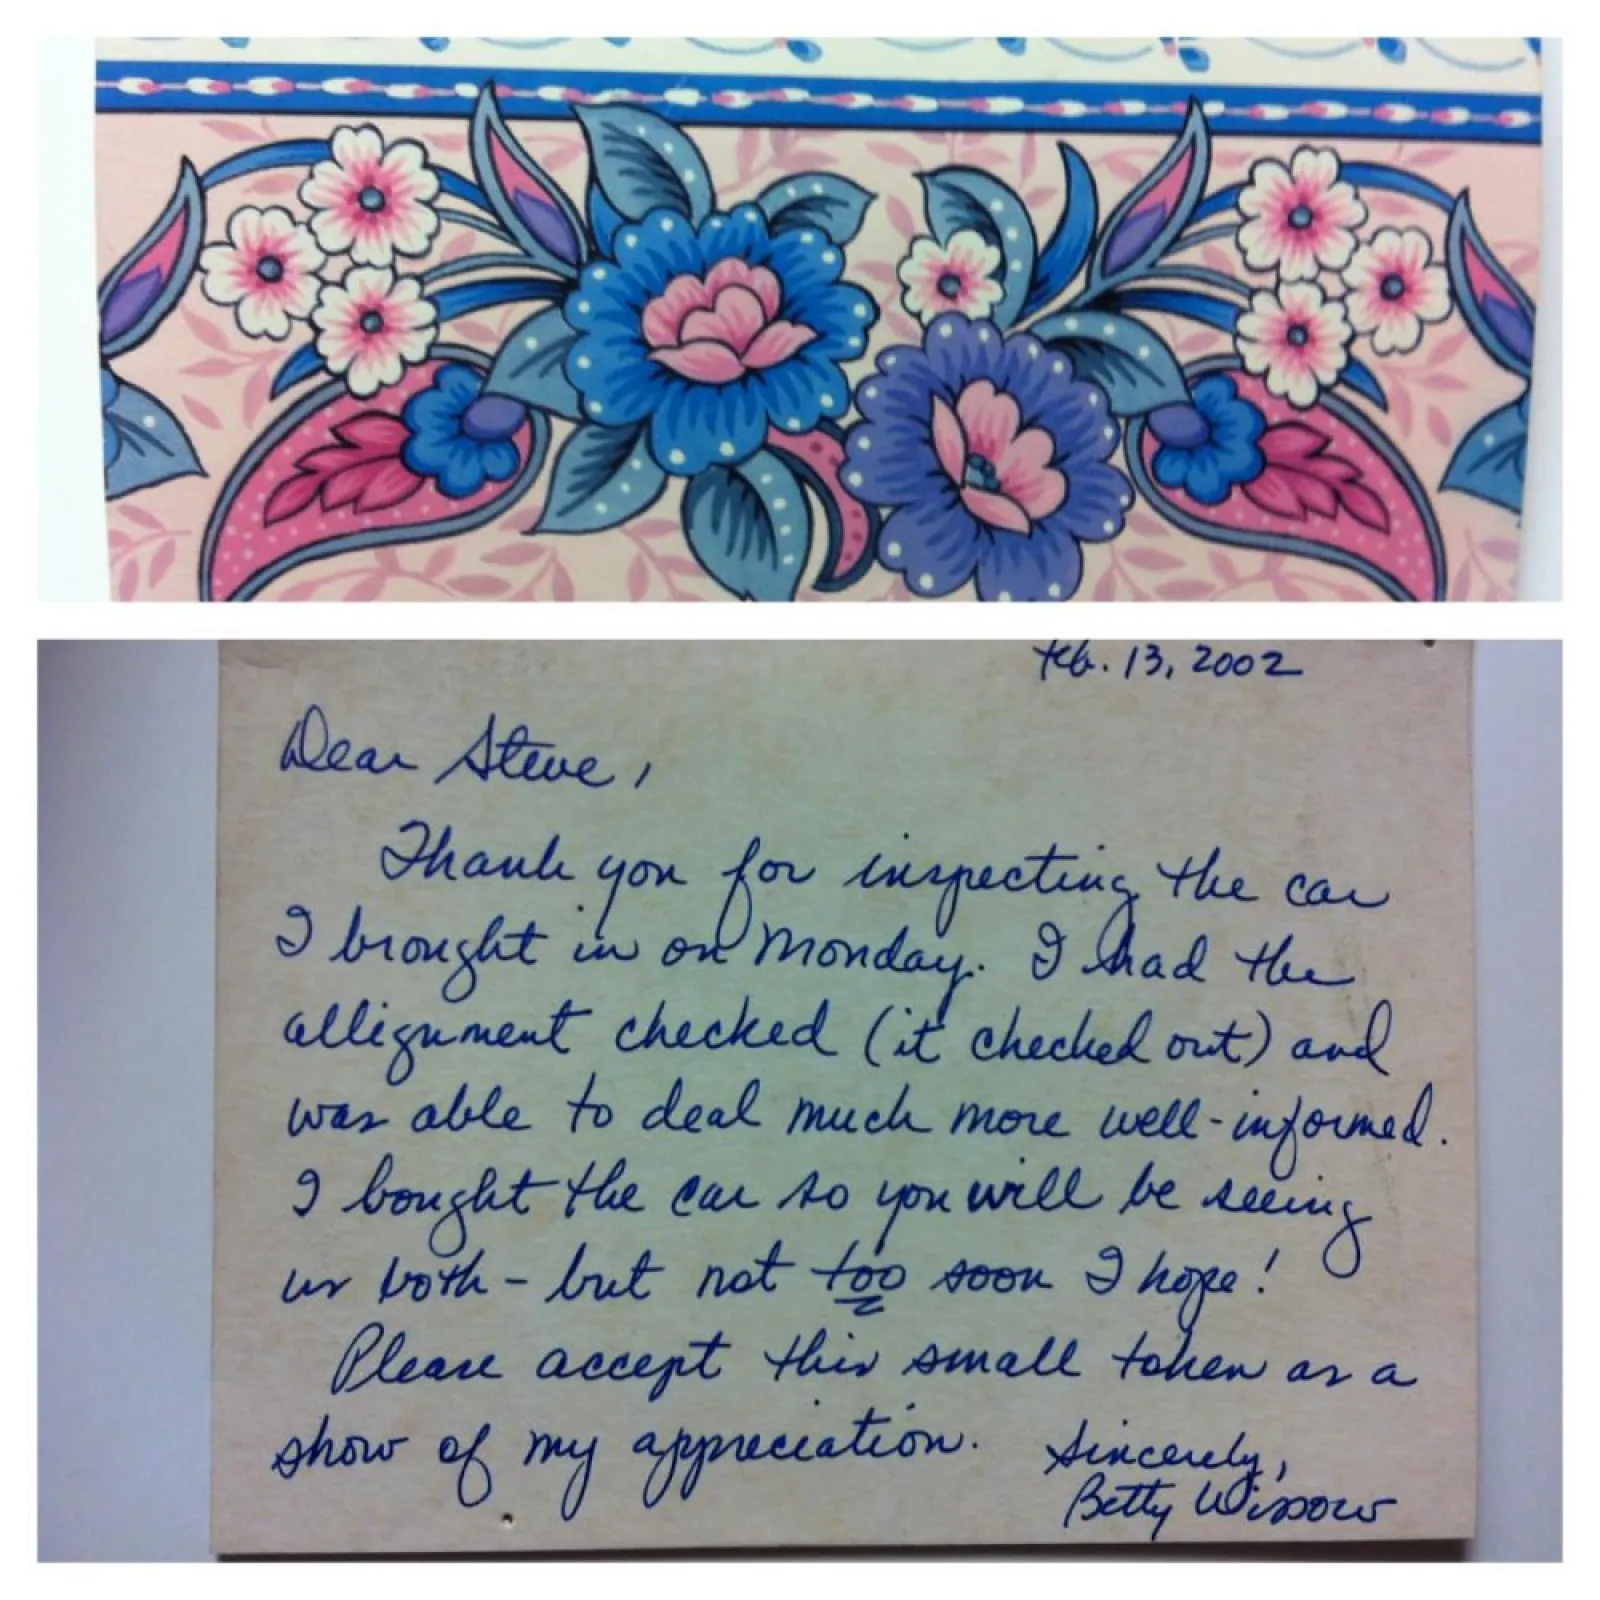 Feb. 13, 2002
Dear Steve,
Thank you for inspecting the car
I brought in on Monday. I had the
allignment checked (it checked out) and
was able to deal much more well-informed.
I bought the car so you will be seeing
us both - but not too soon I hope!
Please accept this small token as a
show of my appreciation. Sincerely,
Betty Wissow